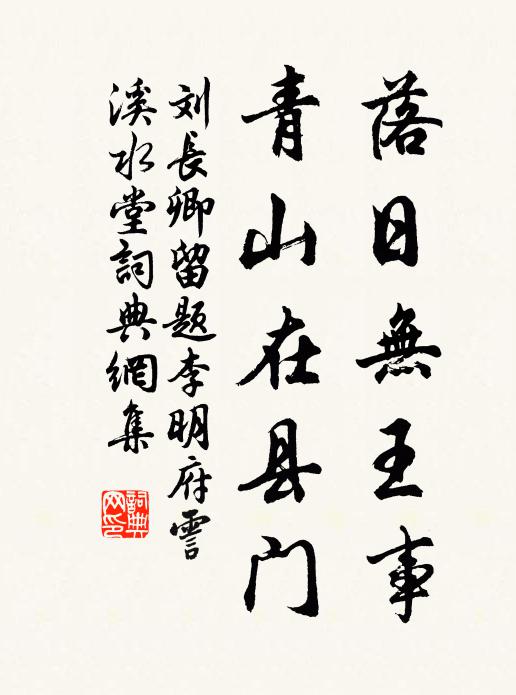 落日無王事
青山在县门
刘長卿留题李明府霅
溪水堂詞典網集
詞典網印